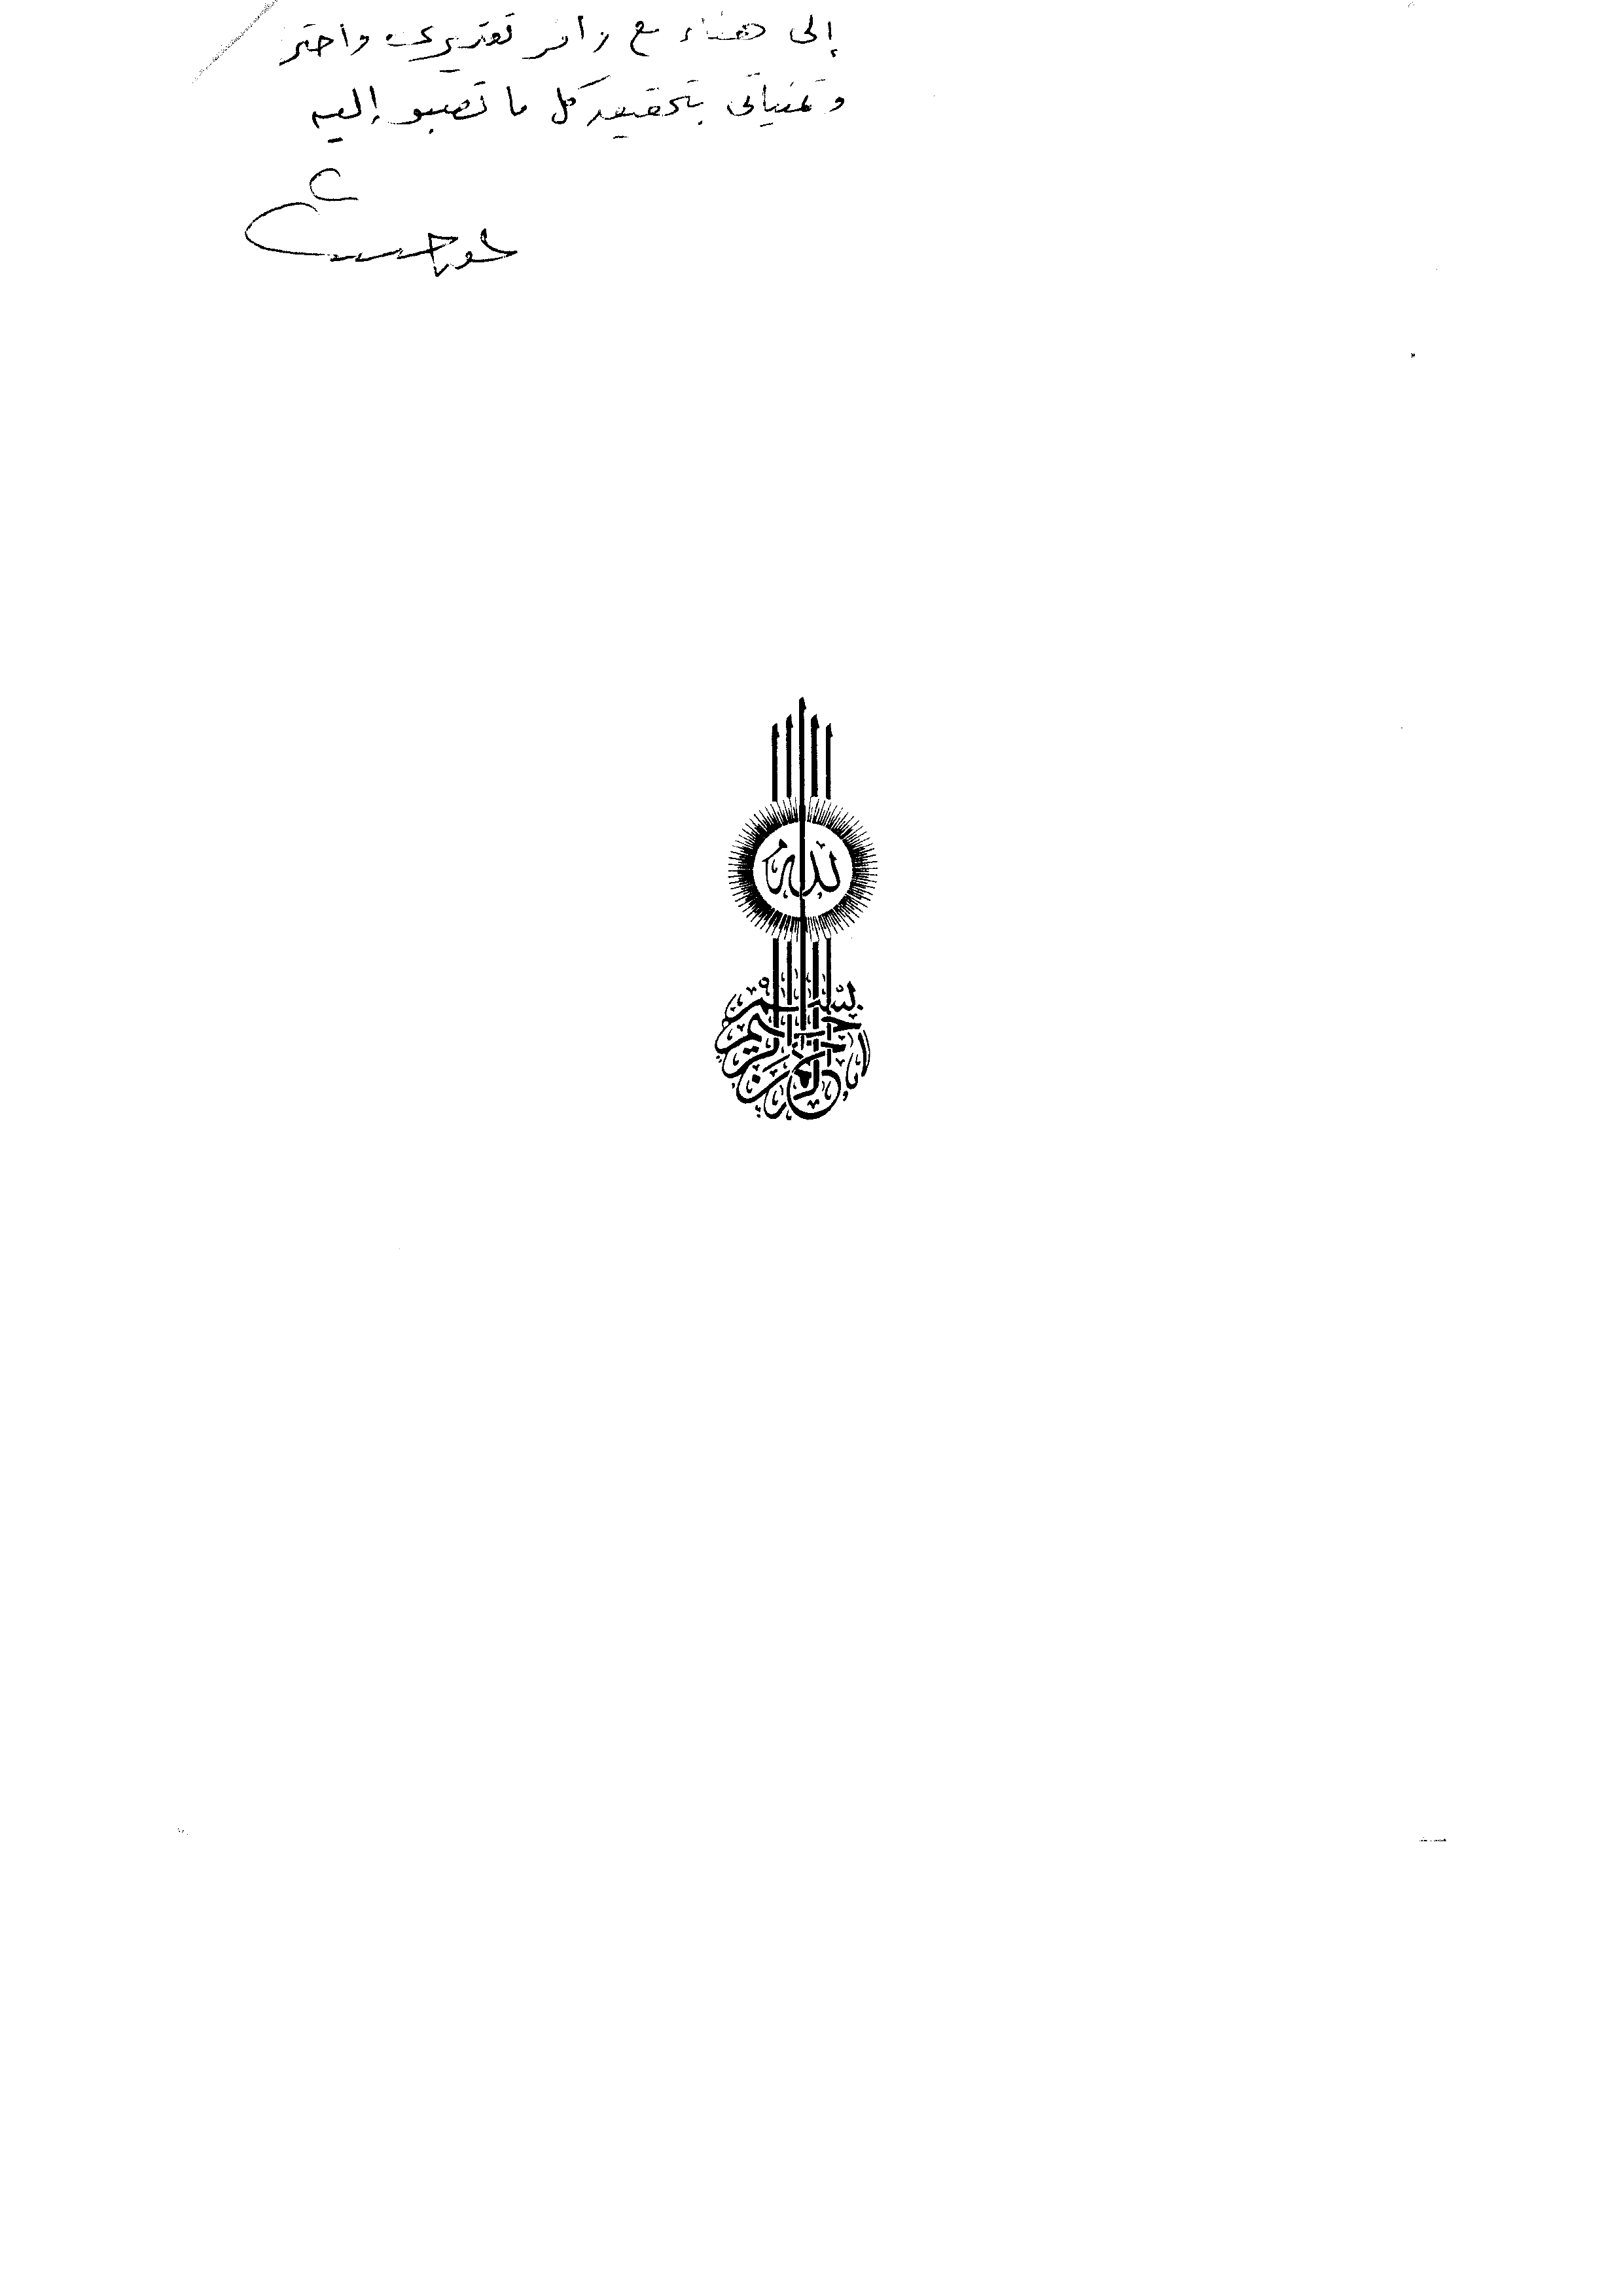 إلى هناء مع وافر تقديرى واحتر
وتمنياتى بتحقيق كل ما تصبو إليه
الله
بسم الله الرحمن الرحيم